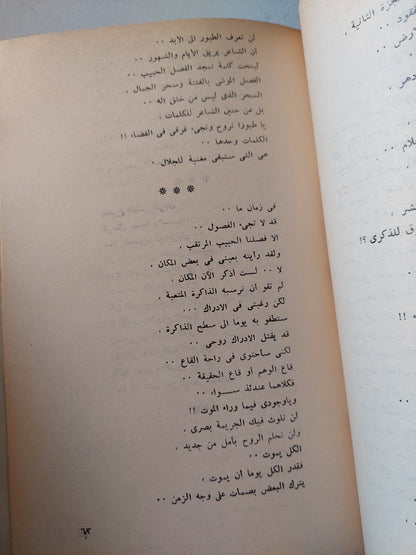 لن تعرف الطيور الى الأبد ..
ان الشاعر يريق الأيام والشهور
لينحت كلمة تمجد الفصل الحبيب ..
الفصل الموشى بالفتنة وسحر الجمال ..
السحر الذى ليس من خلق اله ..
بل من حنين الشاعر للكلمات ..
يا طيورا نروح ونجىء غرقى فى الفضاء !!
الكلمات وحدها ..
هى التى ستبقى مغنية للجلال ..
* * *
فى زمان ما ..
قد لا تجىء الفصول ..
الا فصلنا الحبيب المرتقب ..
ولقد رأيته بعينى فى بعض المكان ..
لا .. لست اذكر الآن المكان ..
لم تقو أن ترسبه الذاكرة المتعبة ..
لكن رغبتى فى الادراك ..
ستطفو به يوما الى سطح الذاكرة ..
قد يقتل الادراك روحى ..
لكنى سأحتوى فى راحة القاع ..
قاع الوهم او قاع الحقيقة ..
فكلاهما عندئذ سواء ..
وياوجودى فيما وراء الموت !!
لن تلوث فيك الجريمة بصرى ..
ولن تحلم الروح بأمل من جديد ..
الكل يموت ..
فقدر الكل يوما أن يموت ..
يترك البعض بصمات على وجه الزمن ..
الثانية ..
للذكرى ؟!
!!